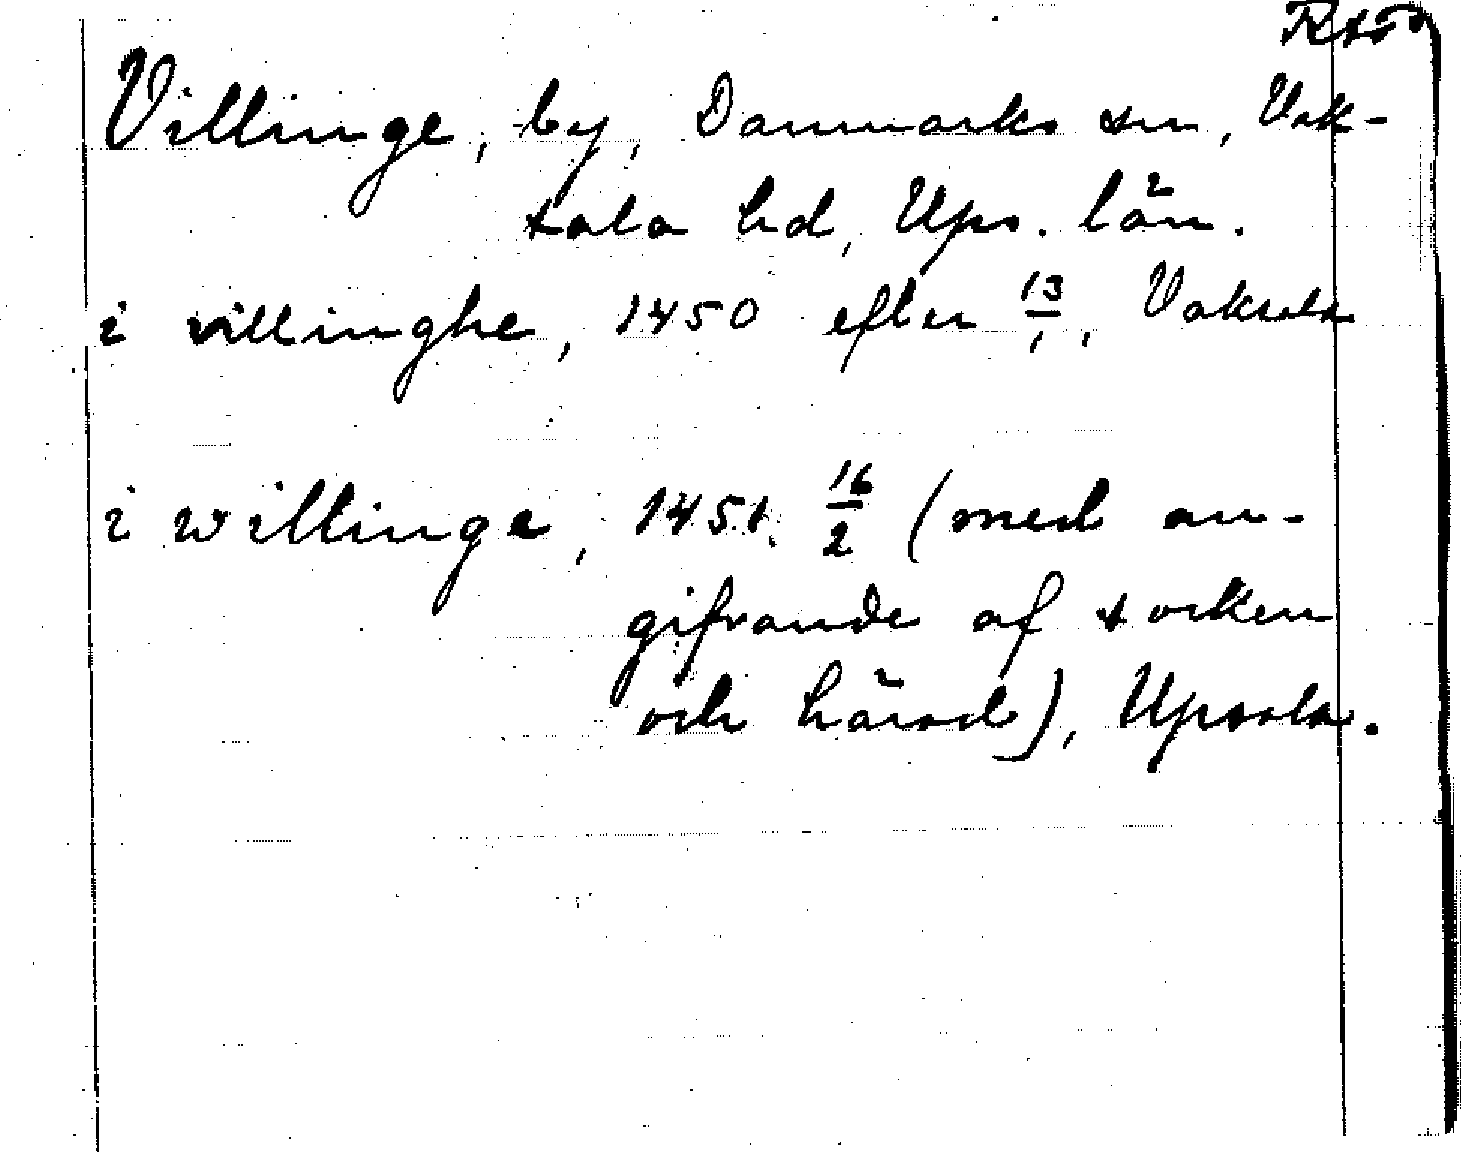 Villinge, by, Danmarks sn, Vak-
sala hd, Ups. län.
i villinghe, 1450 efter 13/1, Vaksala
i willinge, 1451 16/2 (med an-
gifvande af socken
och härad), Upsala.